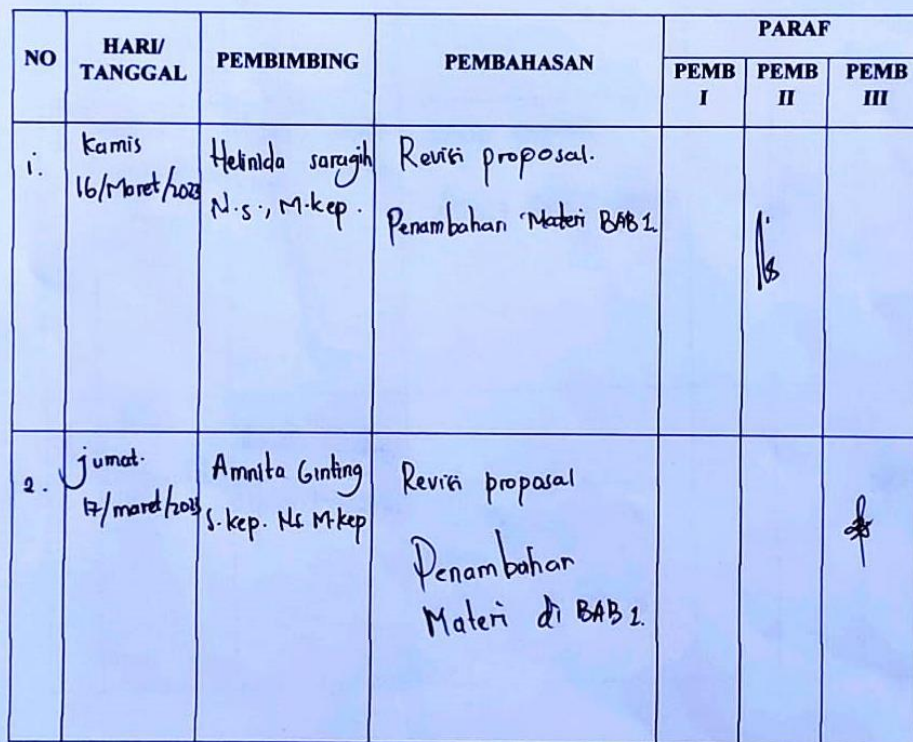 NO
HARI/
TANGGAL
PEMBIMBING
PEMBAHASAN
PARAF
PEMB
I
PEMB
II
PEMB
III
1.
Kamis
16/Maret/2023
Helinida saragih
N.s., M.kep.
Revisi proposal.
Penambahan Materi BAB 1
2.
jumat.
17/maret/2023
Amnita Ginting
S.kep. Ns M.kep
Revisi proposal
Penambahan
Materi di BAB 1.